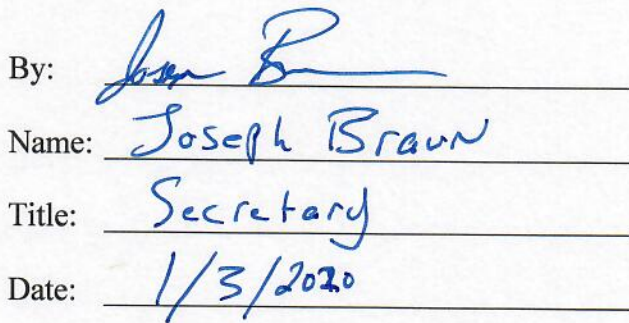 By: Joseph B
Name: Joseph Braun
Title: Secretary
Date: 1/3/2020